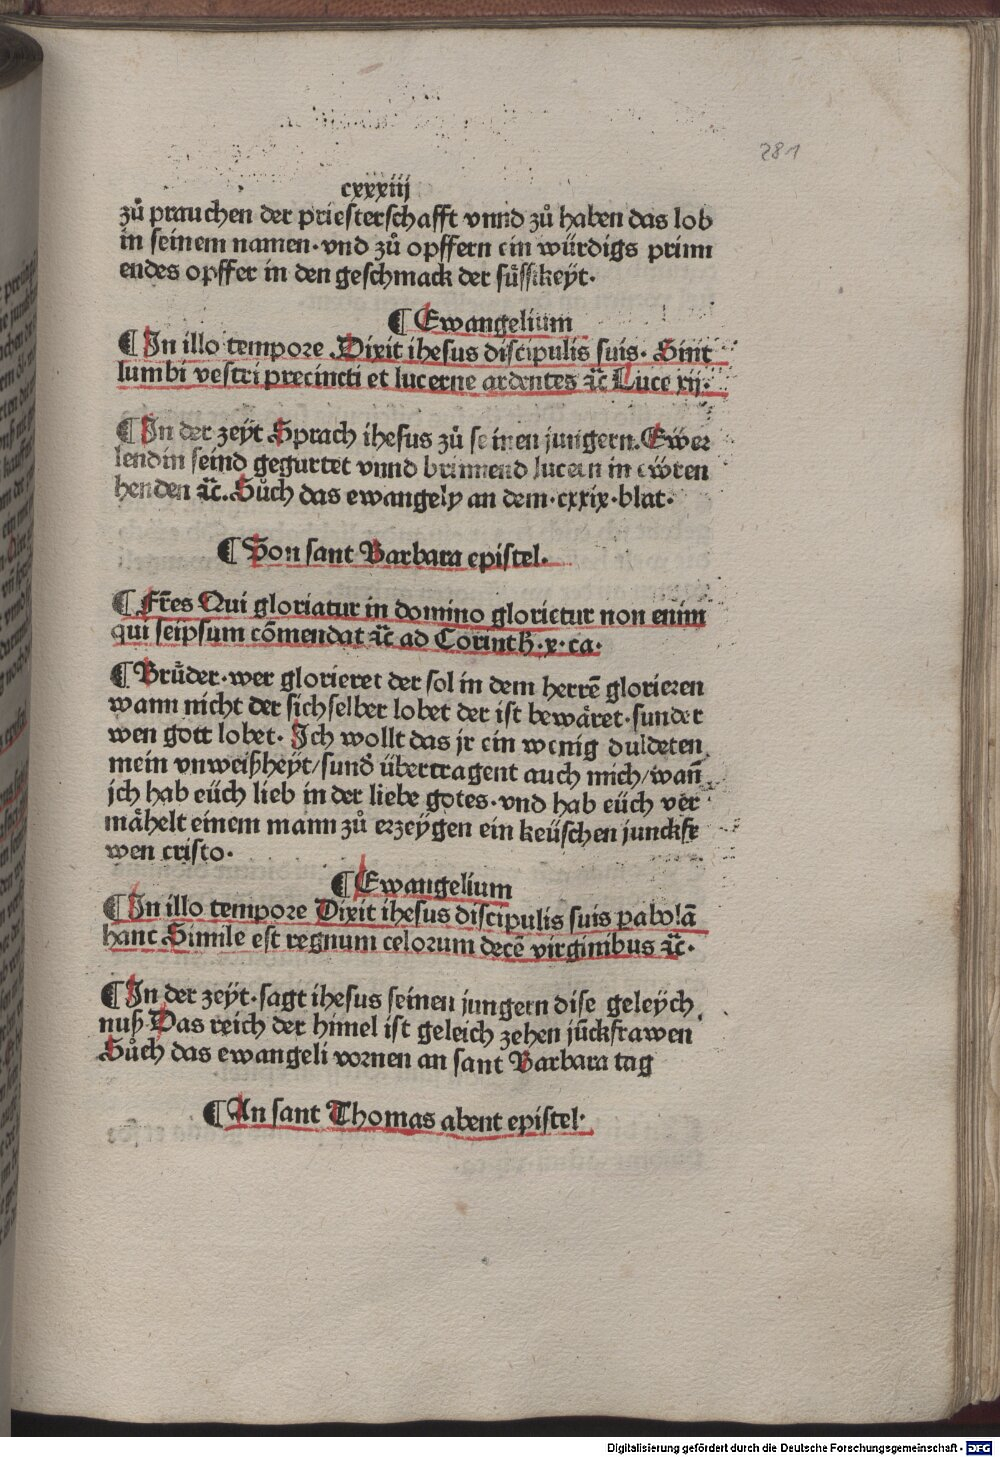 281
cxxxiij
zů prauchen der priesterschafft vnnd zů haben das lob
in seinem namen·vnd zů opffern ein würdigs prinn
endes opffer in den geschmack der sůssikeyt·
¶ Ewangelium
¶ In illo tempore Dixit ihesus discipulis suis· Sint
lumbi vestri precincti et lucerne ardentes ꝛc̃ Luce xij·
¶ In der zeyt Sprach ihesus zů seinen jungern. Ewer
lendin seind gegurtet vnnd brinnend lucern in ewren
henden ꝛc̃. Sůch das ewangely an dem·cxxix·blat·
¶ Von sant Barbara epistel·
¶ Fr̃es Qui gloriatur in domino glorietur non enim
qui seipsum cõmendat ꝛc̃ ad Corinth·x·ca·
¶ Brůder·wer glorieret der sol in dem herrẽ glorieren
wann nicht der sich selber lobet der ist bewäret·sunder
wen gott lobet· Ich wollt das jr ein wenig duldeten
mein vnweißheyt/sund̃ übertragent auch mich/wañ
jch hab eüch lieb in der liebe gotes·vnd hab eüch ver
mähelt einem mann zů erzeygen ein keüschen junckfr
wen cristo·
¶ Ewangelium
¶ In illo tempore Dixit ihesus discipulis suis pabolã
hanc Simile est regnum celorum decẽ virginibus ꝛc̃·
¶ In der zeyt·sagt ihesus seinen jungern dise geleych
nuß Das reich der himel ist geleich zehen jũckfrawen
Sůch das ewangeli vornen an sant Barbara tag
¶ An sant Thomas abent epistel·
Digitalisierung gefördert durch die Deutsche Forschungsgemeinschaft - DFG